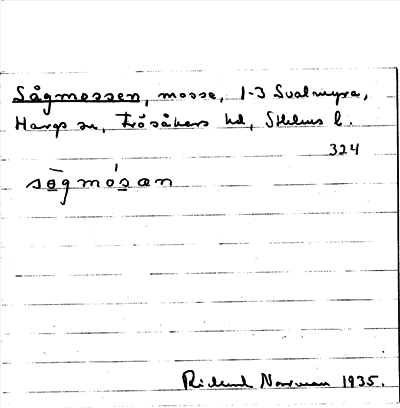 Sågmossen, mosse, 1-3 Svalmyra,
Hargs sn, Frösåkers hd, Sthlms l.
324
sògmósan
Rickard Norrman 1935.